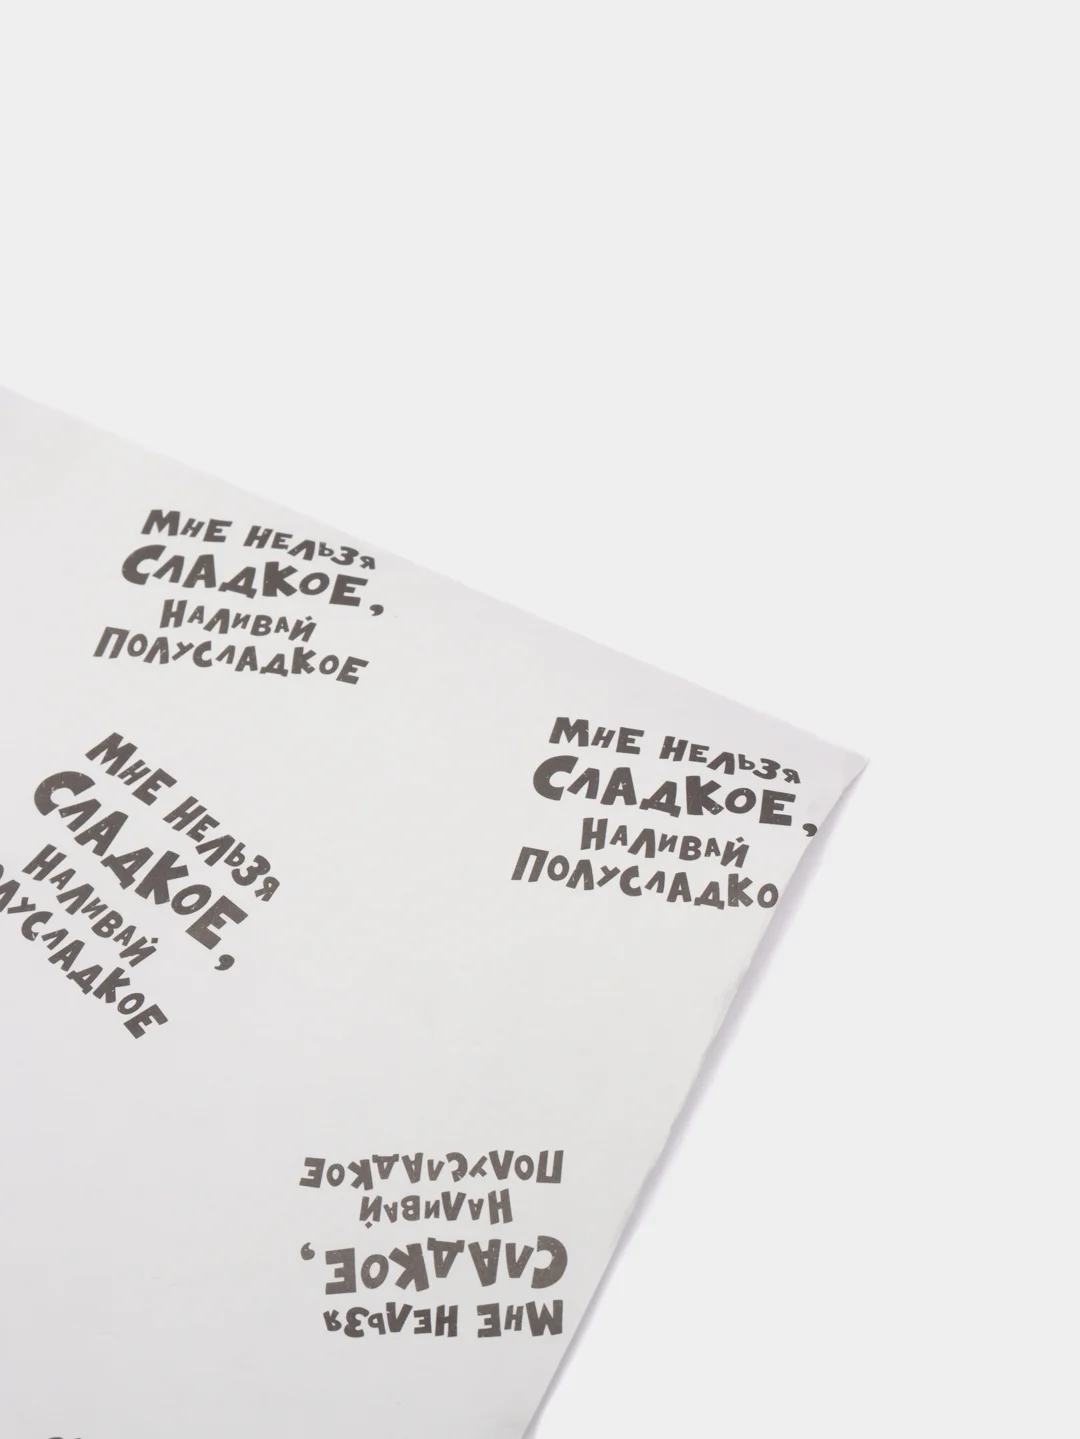 Мне нельзя
сладкое,
наливай
полусладкое
Мне нельзя
сладкое,
наливай
полусладко
Мне нельзя
сладкое,
наливай
лусладкое
Мне нельзя
сладкое,
наливай
полусладкое